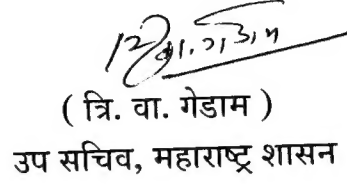 ( त्रि. वा. गेडाम )
उप सचिव, महाराष्ट्र शासन